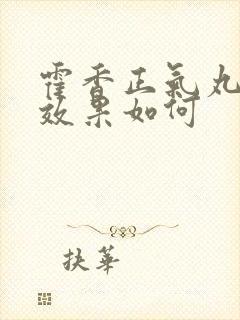 霍香正氣丸
效果如何
扶華